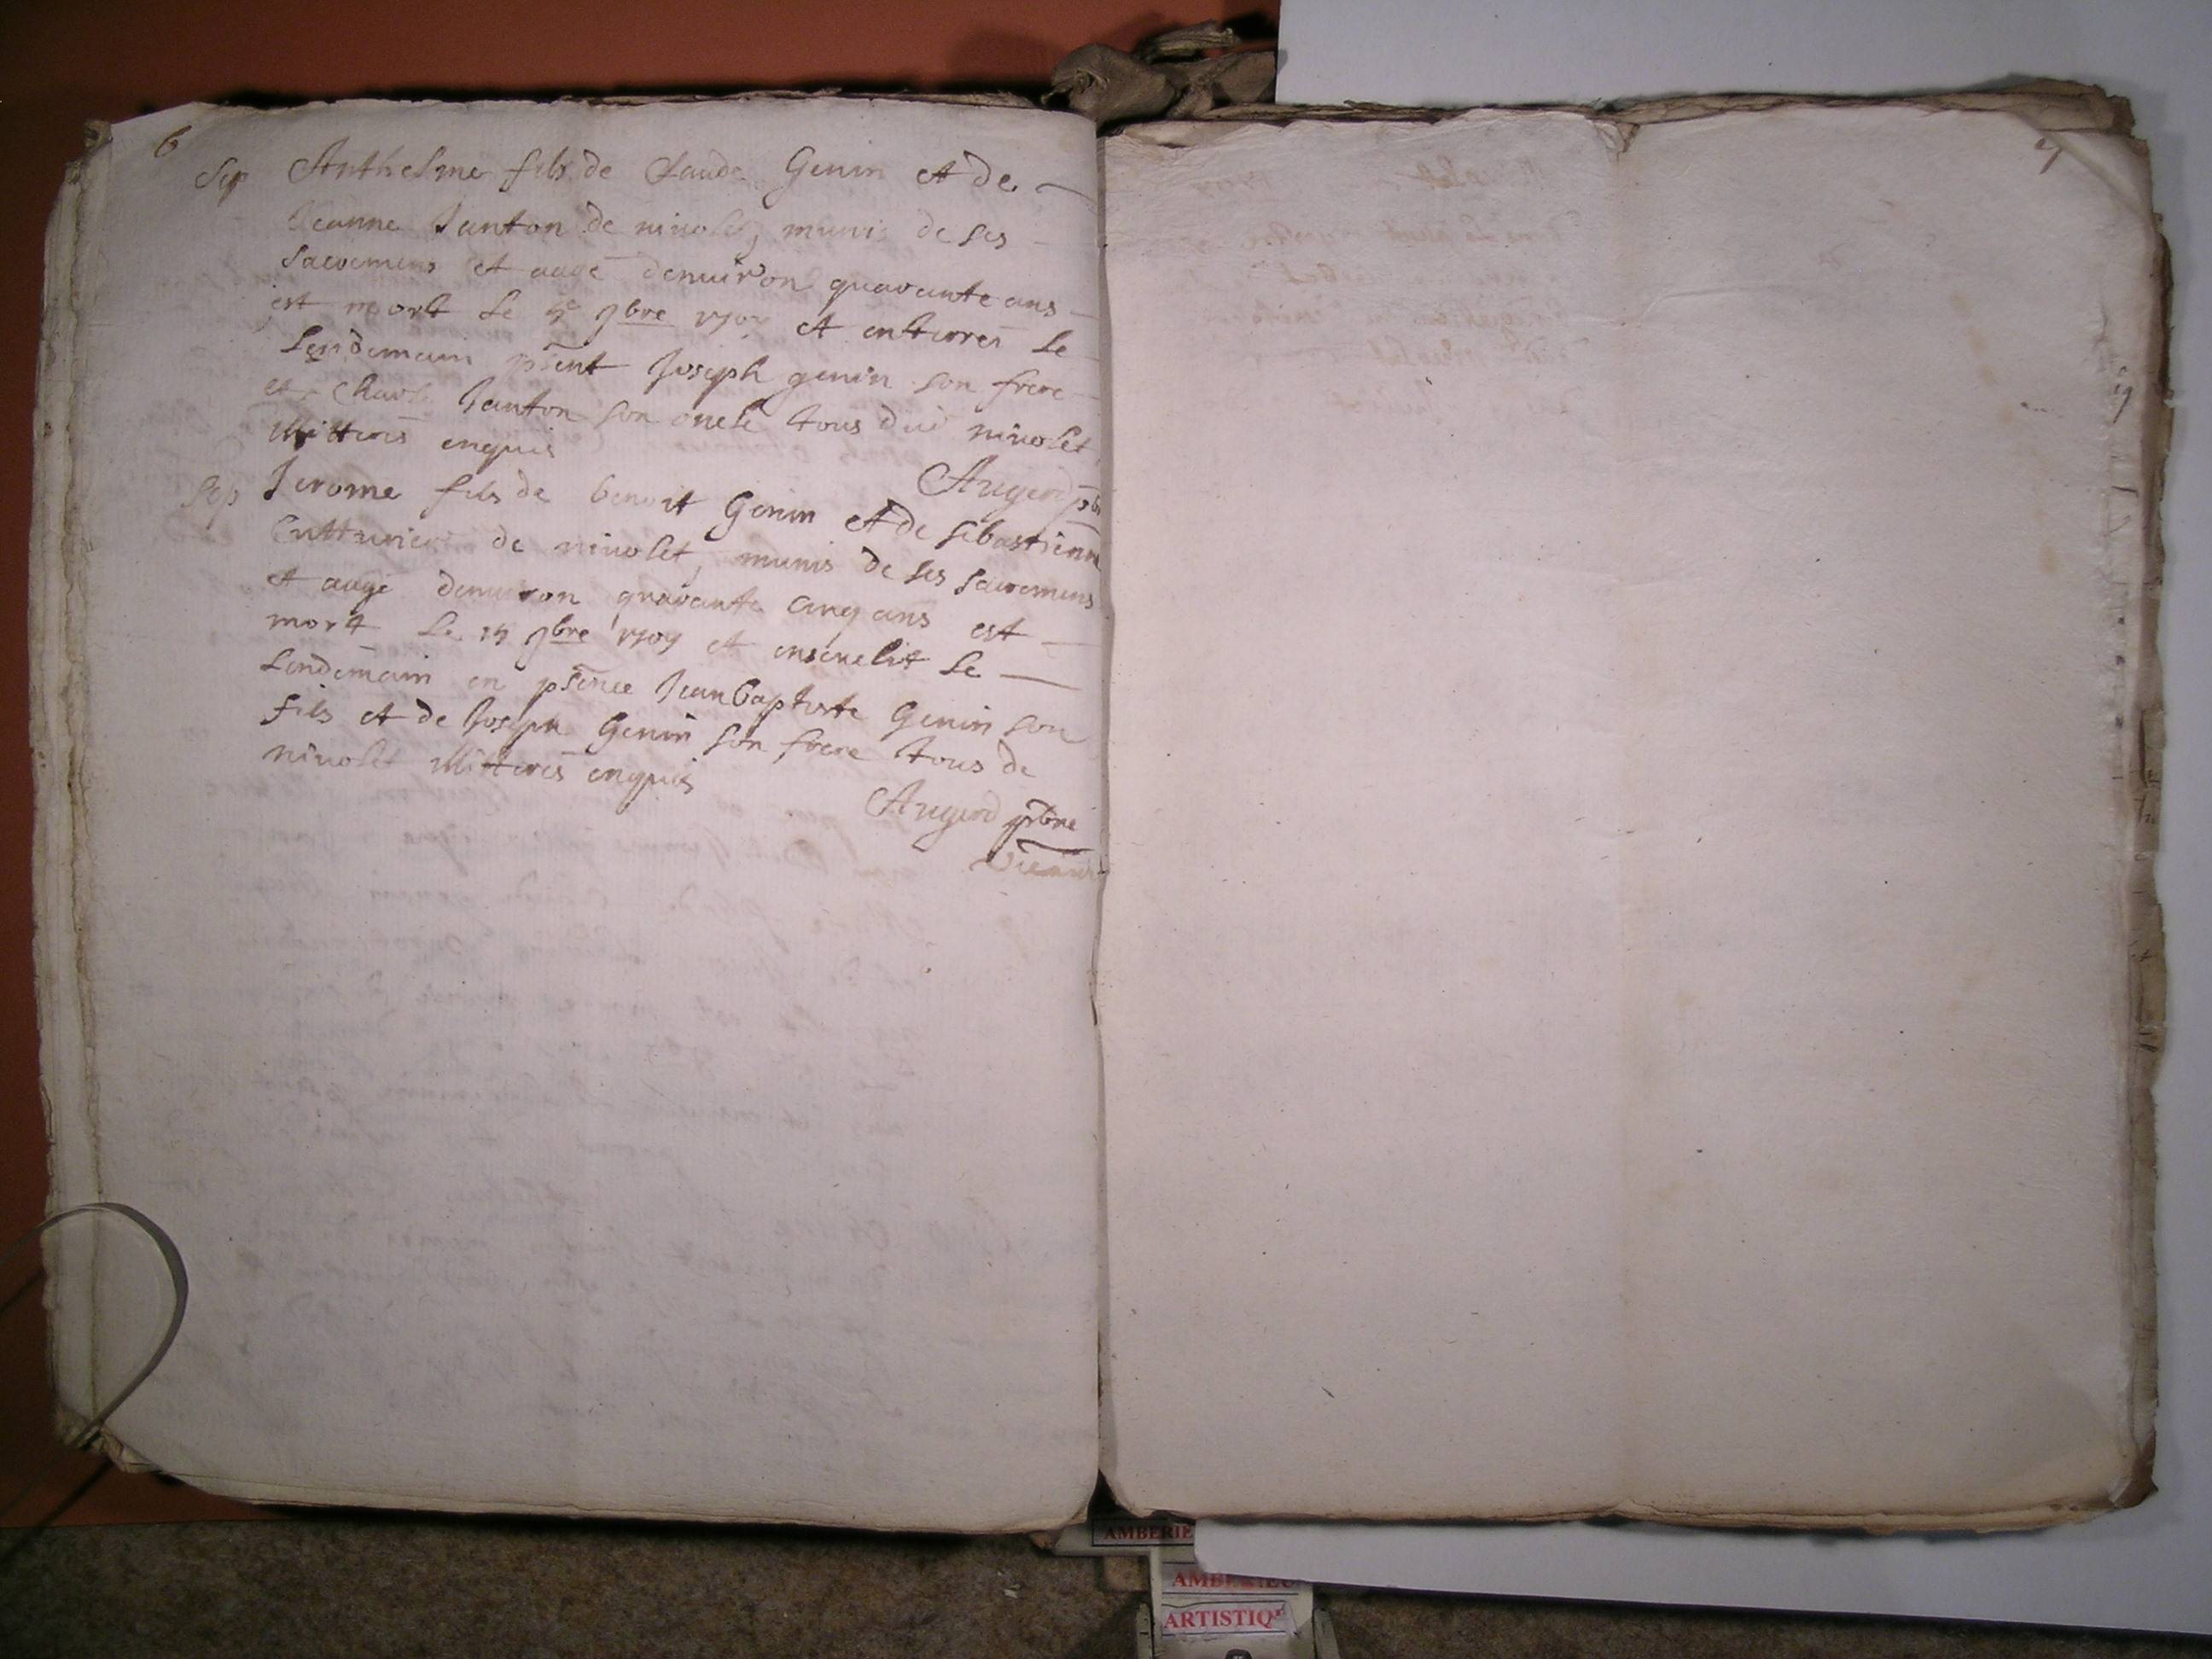 6
Sep Anthelme fils de Claude Genin et de
Jeanne Janton de nivolet, munis de ses
sacremens et aagé denuiron quarante ans
est mort le 7bre et enterrei le
Lendemain pñt Joseph genin son frere
et Charle Janton son oncle tous dud nivolet
illitterés enquis
Augerd pbr
Sep Jerome fils de benoit Genin et de sebastienne
Cutturier de nivolet, munis de ses sacremens
et aagé denuiron quarante cinq ans est
mort le 7bre 1709 et enseuelit le
Lendemain en pñce Jean baptiste Genin son
fils et de Joseph Genin son frere tous de
nivolet illitterés enquis
Augerd pbre
Vicaire
7
AMBERIE
AMBERIEU
ARTISTIQ